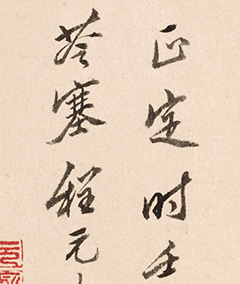 正定时壬
塞程元